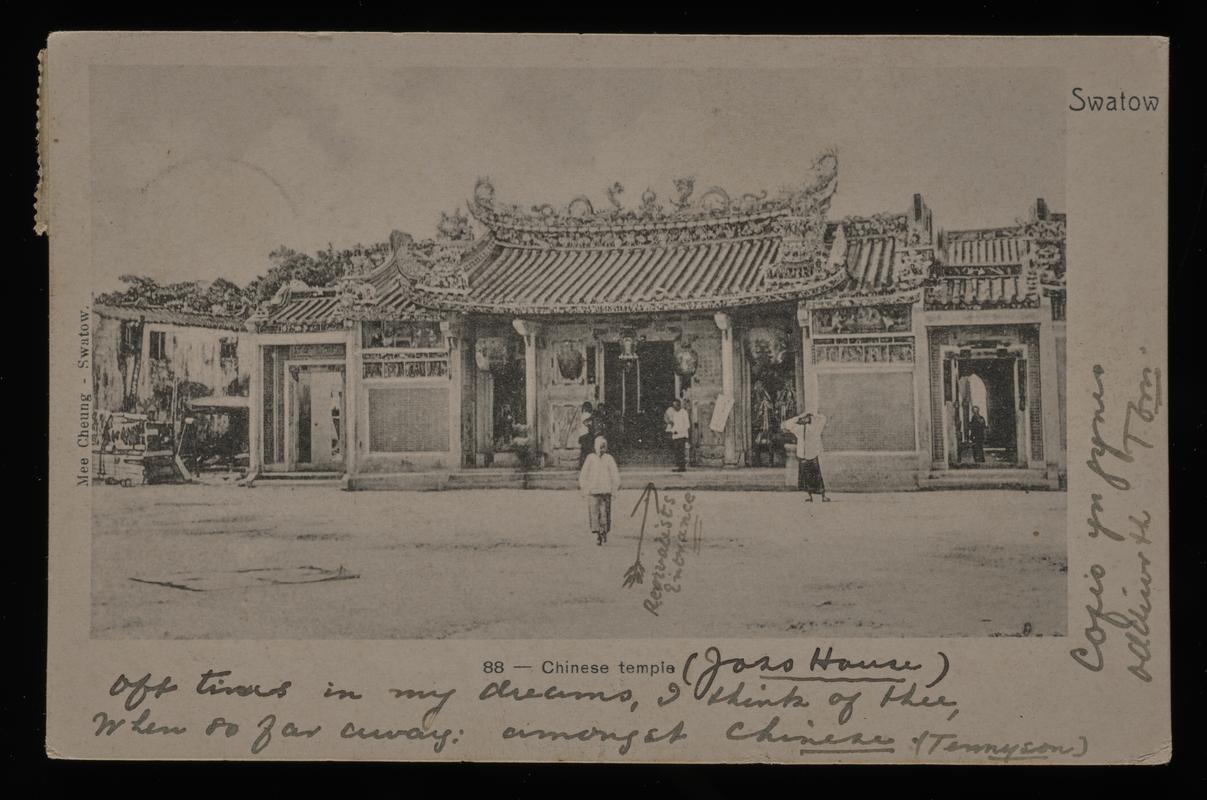 Swatow
Mee Cheung - Swatow.
Revivalists
Entrance
88 — Chinese temple (Joss House)
Oft times in my dreams, I think of thee,
When so far away: amongst Chinese (Tennyson)
Cofio yn gynes
oddiwrth Tom.